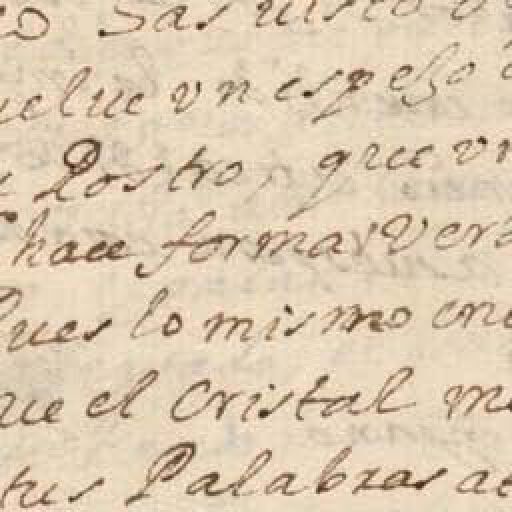 has visto
vn espejo
Rostro, que vn
hace forma, Verd
Pues lo mismo en
que el Cristal m
tus Palabras a